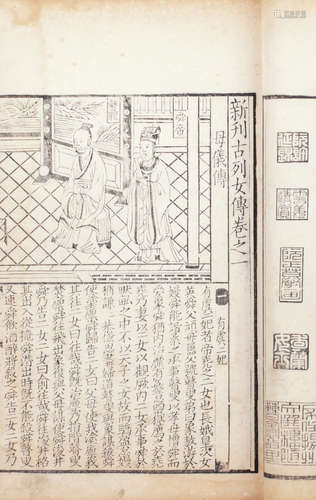 新刊古列女傳卷之一
母儀傳
帝舜
一 有虞二妃
有虞二妃者帝堯之二女也長娥皇次女
英舜父頑母嚚父號瞽叟弟曰象敖游於嫚
舜能諧柔之承事瞽叟以孝母憎舜
而愛象舜猶内治靡有姦意四嶽薦之於堯堯
乃妻以二女以觀厥内二女承事舜於
畎畝之中不以天子之女故而驕盈怠嫚猶謙
謙恭儉思盡婦道瞽叟與象謀殺舜使
塗廩舜歸告二女曰父母使我塗廩我
其往二女曰往哉舜既治廩乃捐階瞽叟
焚廩舜往飛出象復與父母謀使舜浚井
舜乃告二女二女曰俞往哉舜往浚井格其
出入從掩舜潛出時既不能殺舜瞽叟
又速舜飲酒醉將殺之舜告二女二女乃